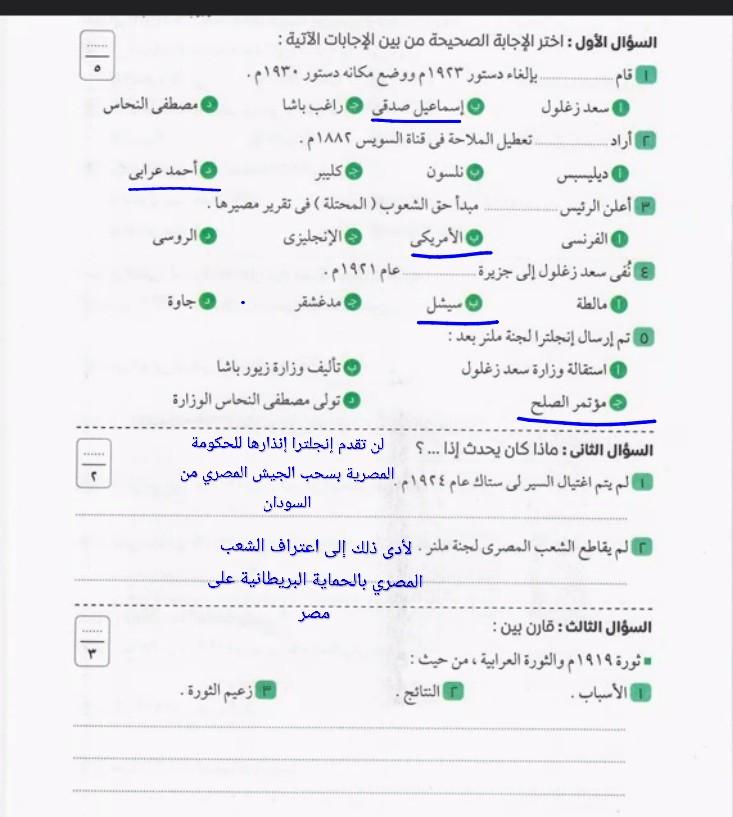 السؤال الأول : اختر الإجابة الصحيحة من بين الإجابات الآتية :
......
٥
١ قام .................... بإلغاء دستور ١٩٢٣م ووضع مكانه دستور ١٩٣٠م .
أ سعد زغلول ب إسماعيل صدقى ج راغب باشا د مصطفى النحاس
٢ أراد .................... تعطيل الملاحة فى قناة السويس ١٨٨٢م .
أ ديليسبس ب نلسون ج كليبر د أحمد عرابى
٣ أعلن الرئيس .................... مبدأ حق الشعوب ( المحتلة ) فى تقرير مصيرها .
أ الفرنسى ب الأمريكى ج الإنجليزى د الروسى
٤ نُفى سعد زغلول إلى جزيرة .................... عام ١٩٢١م .
أ مالطة ب سيشل ج مدغشقر د جاوة
٥ تم إرسال إنجلترا لجنة ملنر بعد :
أ استقالة وزارة سعد زغلول ب تأليف وزارة زيور باشا
ج مؤتمر الصلح د تولى مصطفى النحاس الوزارة
السؤال الثانى : ماذا كان يحدث إذا ... ؟
......
٢
١ لم يتم اغتيال السير لى ستاك عام ١٩٢٤م .
لن تقدم إنجلترا إنذارها للحكومة
المصرية بسحب الجيش المصري من
السودان
٢ لم يقاطع الشعب المصرى لجنة ملنر .
لأدى ذلك إلى اعتراف الشعب
المصري بالحماية البريطانية على
مصر
السؤال الثالث : قارن بين :
......
٣
ثورة ١٩١٩م والثورة العرابية ، من حيث :
١ الأسباب . ٢ النتائج . ٣ زعيم الثورة .